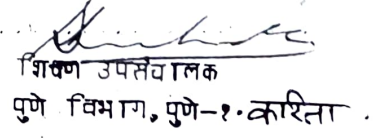 शिक्षण उपसंचालक
पुणे विभाग, पुणे-१. करिता .